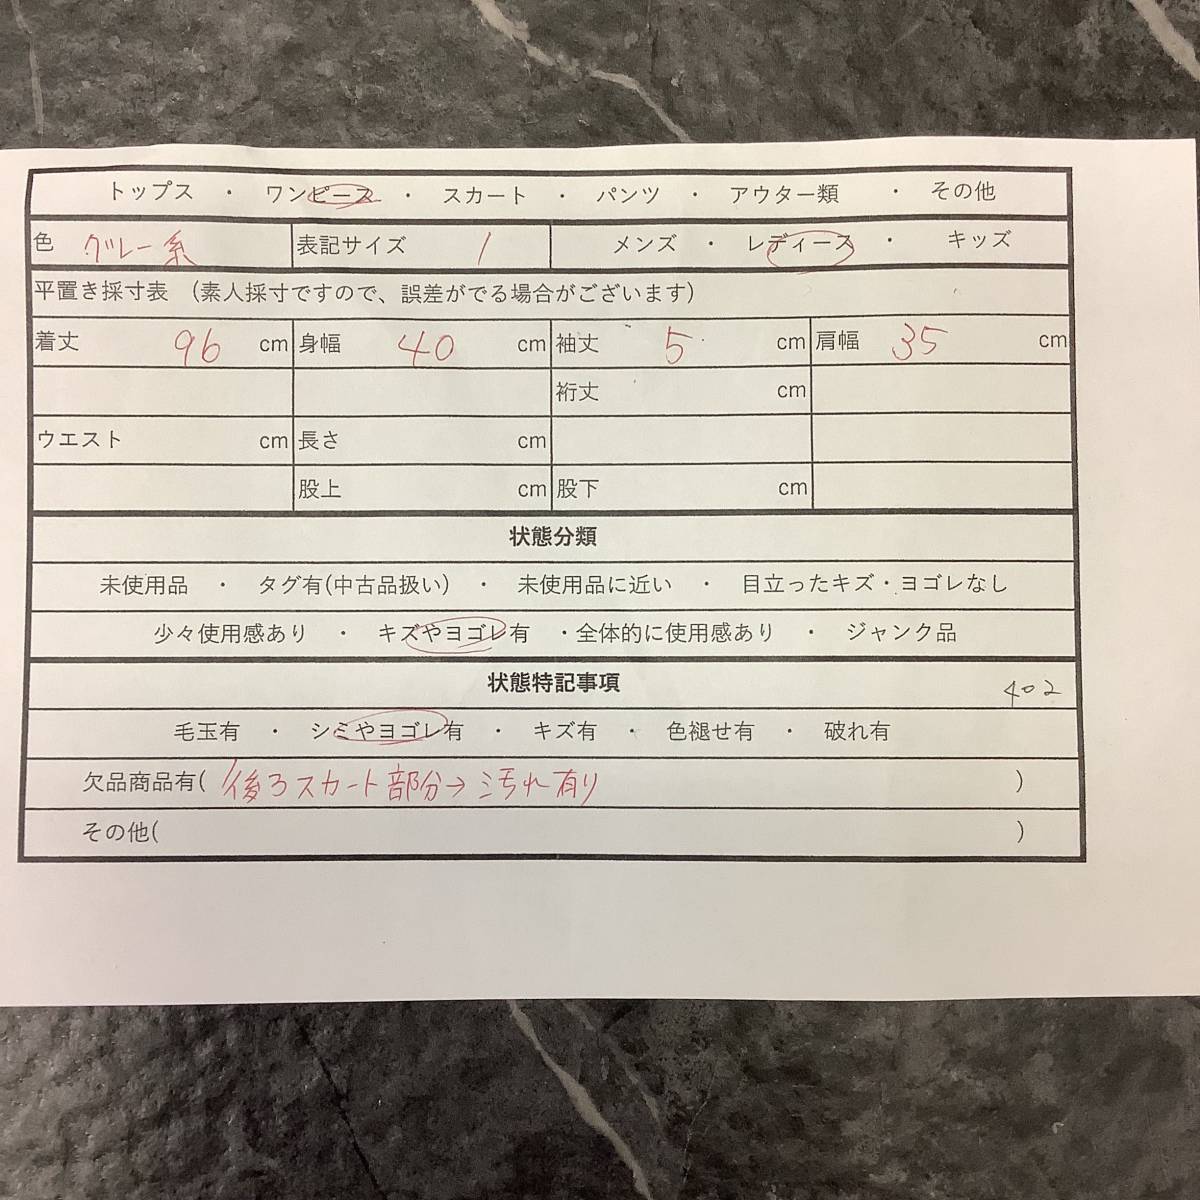 トップス ・ ワンピース ・ スカート ・ パンツ ・ アウター類 ・ その他
色 グレー系 表記サイズ 1 メンズ ・ レディース ・ キッズ
平置き採寸表 (素人採寸ですので、誤差がでる場合がございます)
着丈 96 cm 身幅 40 cm 袖丈 5 cm 肩幅 35 cm
裄丈 cm
ウエスト cm 長さ cm
股上 cm 股下 cm
状態分類
未使用品 ・ タグ有(中古品扱い) ・ 未使用品に近い ・ 目立ったキズ・ヨゴレなし
少々使用感あり ・ キズやヨゴレ有 ・全体的に使用感あり ・ ジャンク品
状態特記事項 402
毛玉有 ・ シミやヨゴレ有 ・ キズ有 ・ 色褪せ有 ・ 破れ有
欠品商品有( 後ろスカート部分→汚れ有り )
その他( )